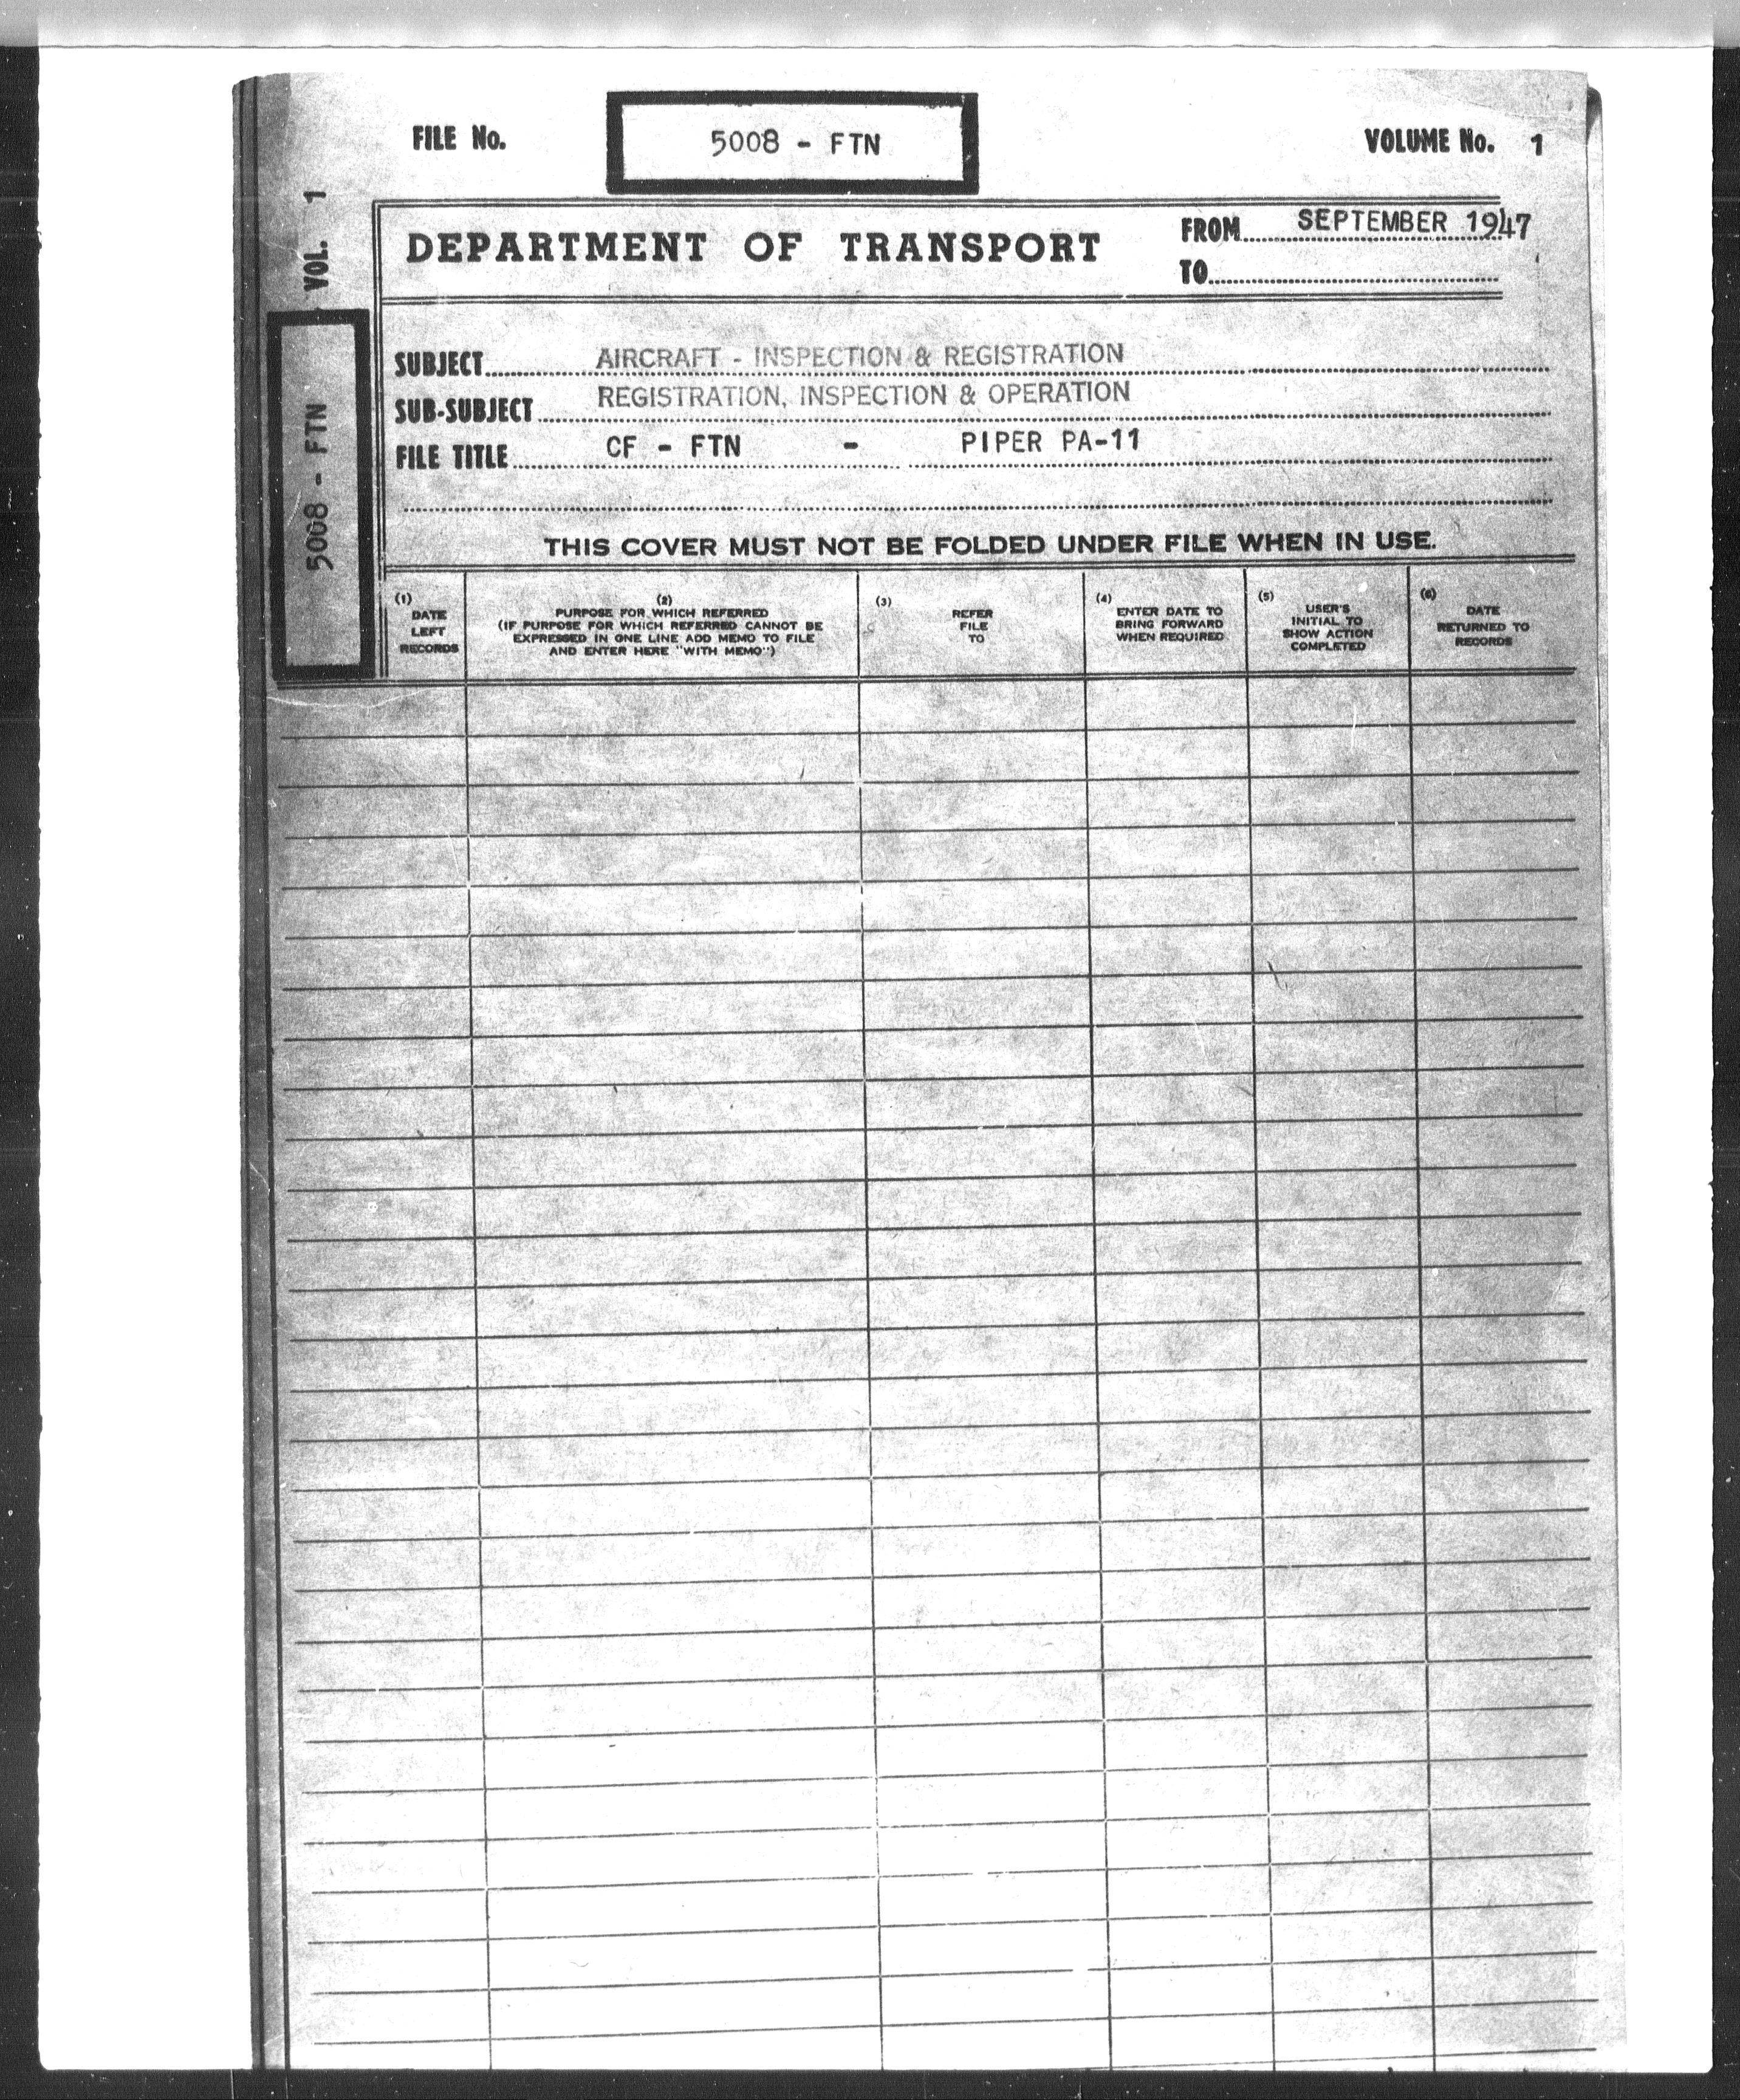 FILE No. 5008 - FTN VOLUME No. 1
VOL. 1
5008 - FTN
DEPARTMENT OF TRANSPORT
FROM SEPTEMBER 1947
TO
SUBJECT AIRCRAFT - INSPECTION & REGISTRATION
SUB-SUBJECT REGISTRATION, INSPECTION & OPERATION
FILE TITLE CF - FTN - PIPER PA-11
THIS COVER MUST NOT BE FOLDED UNDER FILE WHEN IN USE.
(1)
DATE
LEFT
RECORDS
(2)
PURPOSE FOR WHICH REFERRED
(IF PURPOSE FOR WHICH REFERRED CANNOT BE
EXPRESSED IN ONE LINE ADD MEMO TO FILE
AND ENTER HERE "WITH MEMO")
(3)
REFER
FILE
TO
(4)
ENTER DATE TO
BRING FORWARD
WHEN REQUIRED
(5)
USER'S
INITIAL TO
SHOW ACTION
COMPLETED
(6)
DATE
RETURNED TO
RECORDS